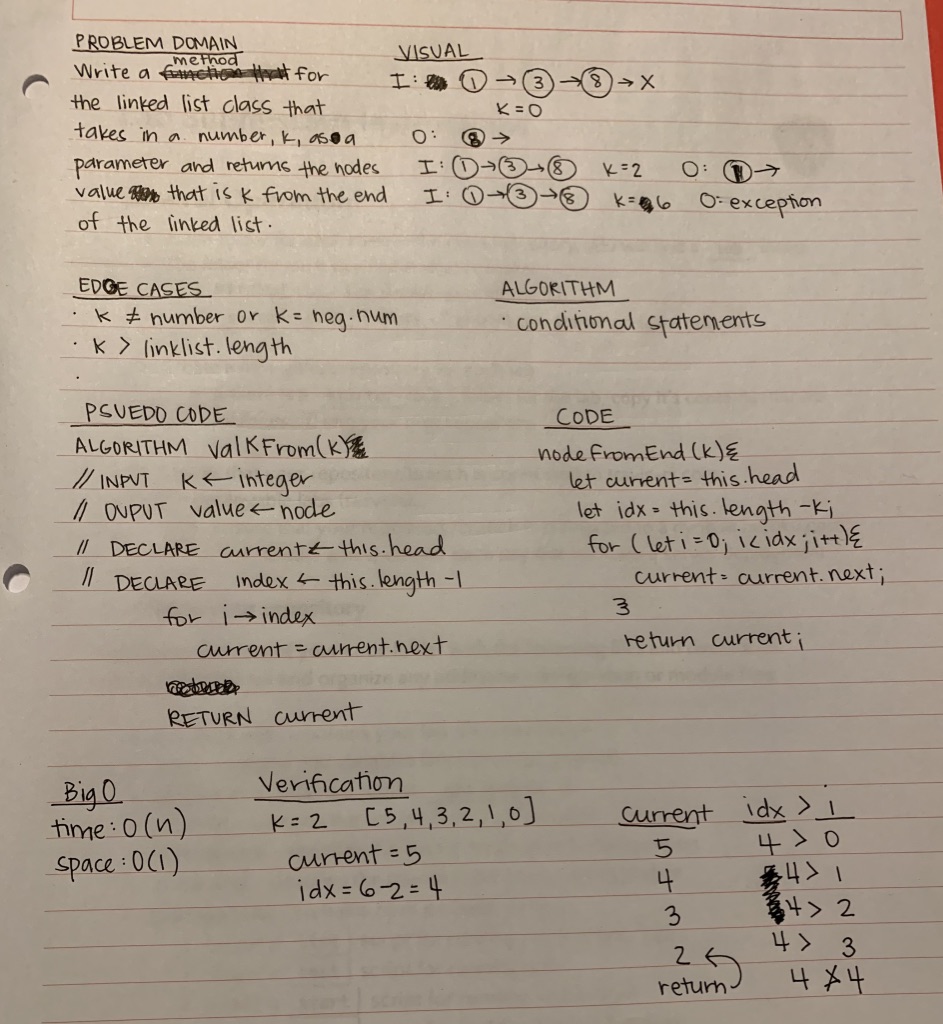 PROBLEM DOMAIN
Write a method for
the linked list class that
takes in a number, k, as a
parameter and returns the nodes
value that is k from the end
of the linked list.
VISUAL
I: 1 → 3 → 8 → X
K = 0
O: 8 →
I: 1 → 3 → 8 K = 2 O: 1 →
I: 1 → 3 → 8 K = 6 O: exception
EDGE CASES
· K ≠ number or K = neg. num
· K > linklist.length
·
ALGORITHM
· conditional statements
PSUEDO CODE
ALGORITHM valKFrom(k)
// INPUT K ← integer
// OUPUT value ← node
// DECLARE current ← this.head
// DECLARE index ← this.length -1
for i → index
current = current.next
RETURN current
CODE
nodeFromEnd(k){
let current = this.head
let idx = this.length - k;
for (let i = 0; i < idx; i++){
current = current.next;
}
return current;
Big O
time: O(n)
space: O(1)
Verification
K = 2 [5, 4, 3, 2, 1, 0]
current = 5
idx = 6-2 = 4
current idx > i
5 4 > 0
4 4 > 1
3 4 > 2
2 4 > 3
return 4 ≯ 4